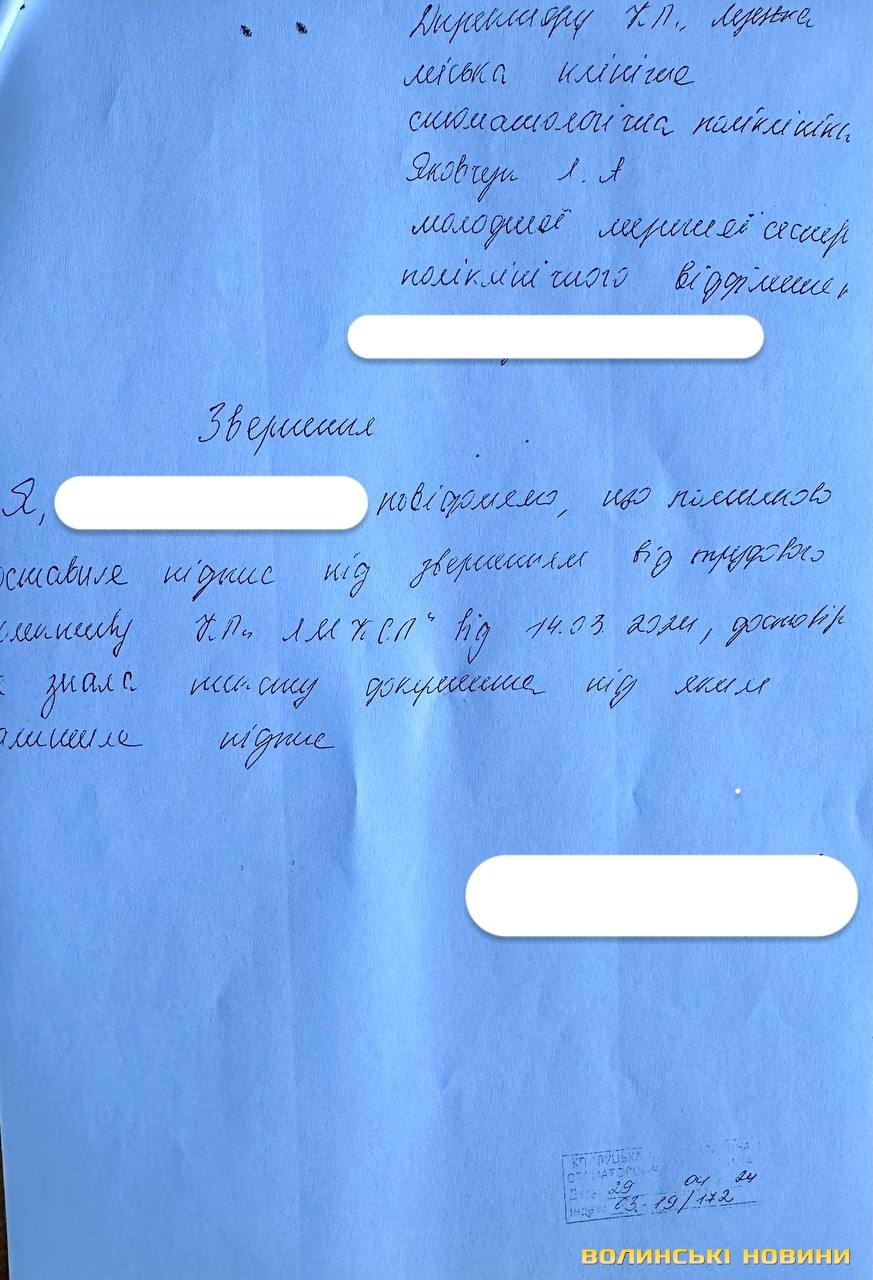 Директору К.П., Луцька
міська клінічна
стоматологічна поліклініка
Яковчук Л. А
молодшої медичної сестр
поліклінічного відділенн
Звернення
Я, повідомляю, що помилково
оставила підпис під зверненням від трудового
К.П. "ЛМКСП" від 14.03.2024, достовір
знала документа під яким
алишила підпис
КП ЛУЦЬКА
СТОМАТОЛОГ
Дата 29 04 24
Індекс 03-19/172
ВОЛИНСЬКІ НОВИНИ